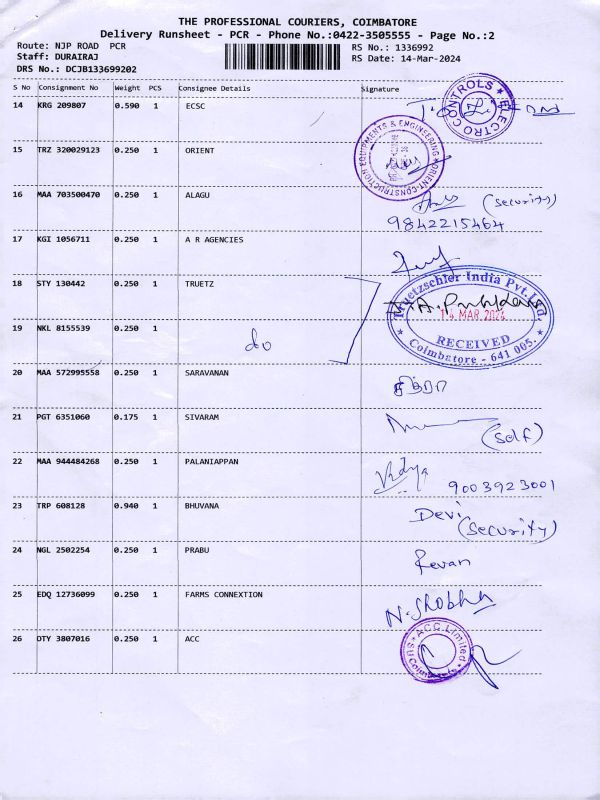 THE PROFESSIONAL COURIERS, COIMBATORE
Delivery Runsheet - PCR - Phone No.:0422-3505555 - Page No.:2
Route: NJP ROAD PCR
RS No.: 1336992
Staff: DURAIRAJ
RS Date: 14-Mar-2024
DRS No.: DCJB133699202
S No Consignment No Weight PCS Consignee Details Signature
14 KRG 209807 0.590 1 ECSC
ELECTRO CONTROLS
15 TRZ 320029123 0.250 1 ORIENT
ORIENT CONSTRUCTION EQUIPMENTS & ENGINEERING
16 MAA 703500470 0.250 1 ALAGU
(security)
9842215464
17 KGI 1056711 0.250 1 A R AGENCIES
18 STY 130442 0.250 1 TRUETZ
Truetzschler India Pvt. Ltd.,
14 MAR 2024
RECEIVED
Coimbatore - 641 005.
19 NKL 8155539 0.250 1 do
20 MAA 572995558 0.250 1 SARAVANAN
சித்ரா
21 PGT 6351060 0.175 1 SIVARAM
(self)
22 MAA 944484268 0.250 1 PALANIAPPAN
Vidya
9003923001
23 TRP 608128 0.940 1 BHUVANA
Devi
(security)
24 NGL 2502254 0.250 1 PRABU
Revan
25 EDQ 12736099 0.250 1 FARMS CONNEXTION
N. Shobha
26 OTY 3807016 0.250 1 ACC
ACC Limited
Coimbatore